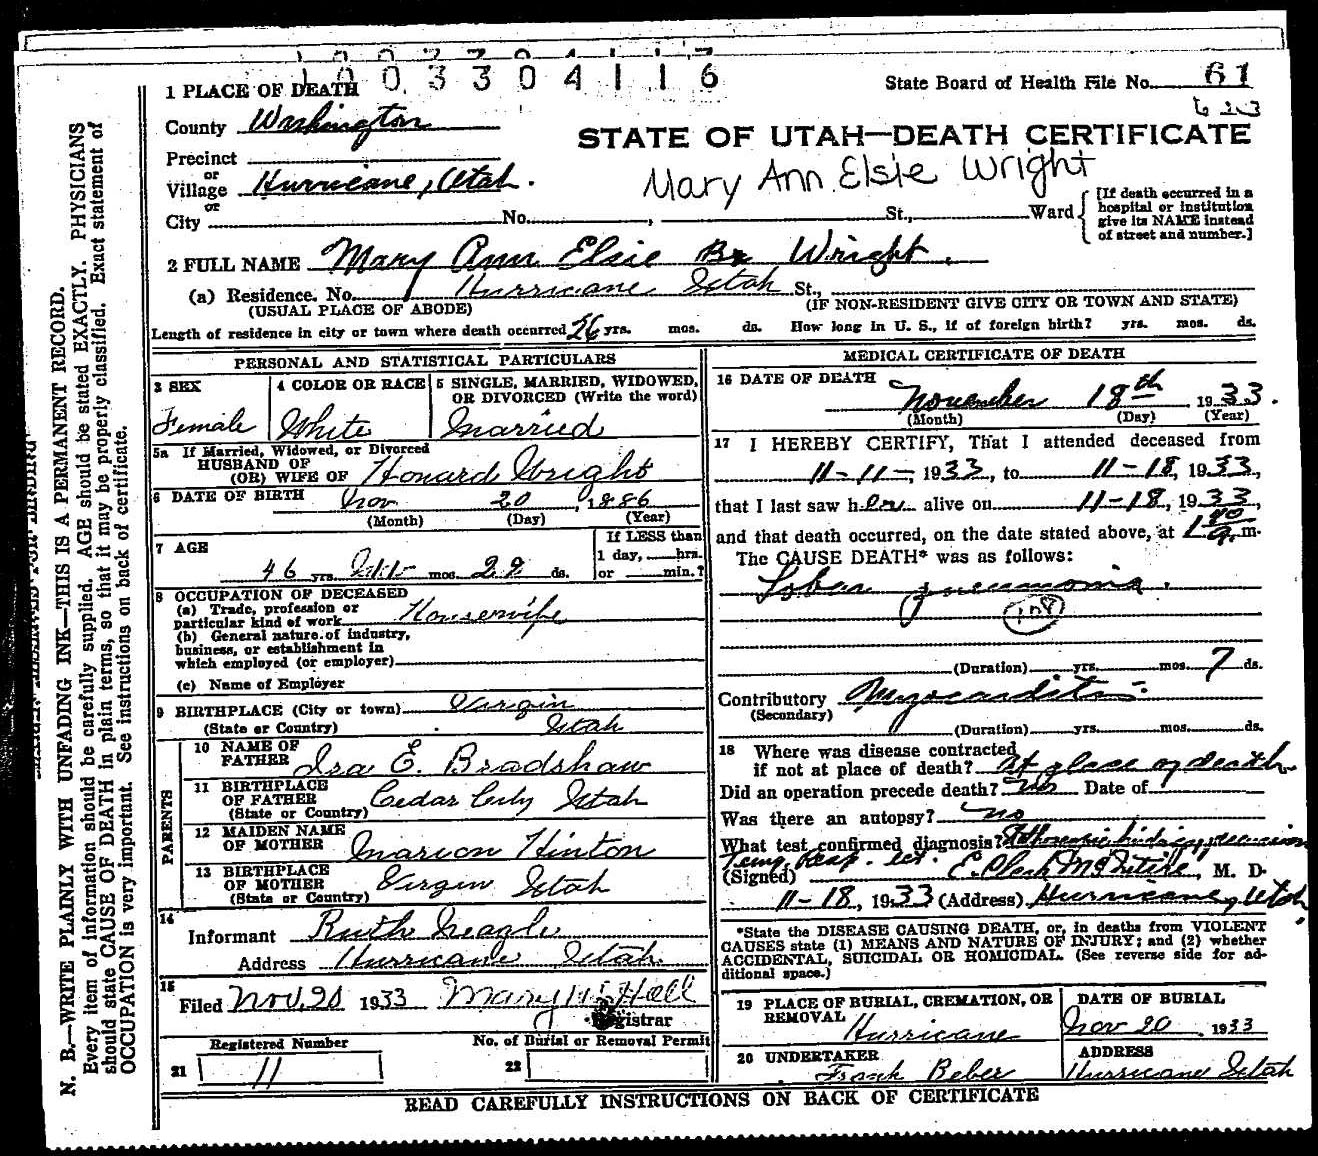 1003304116
1 PLACE OF DEATH
State Board of Health File No. 61
623
County Washington
STATE OF UTAH—DEATH CERTIFICATE
Precinct
or
Village Hurricane, Utah.
Mary Ann Elsie Wright
or
City No. , St., Ward
[If death occurred in a
hospital or institution
give its NAME instead
of street and number.]
2 FULL NAME Mary Ann Elsie Br Wright
(a) Residence. No. Hurricane Utah St.,
(USUAL PLACE OF ABODE) (IF NON-RESIDENT GIVE CITY OR TOWN AND STATE)
Length of residence in city or town where death occurred 26 yrs. mos. ds. How long in U. S., if of foreign birth? yrs. mos. ds.
PERSONAL AND STATISTICAL PARTICULARS
3 SEX
Female
4 COLOR OR RACE
White
5 SINGLE, MARRIED, WIDOWED,
OR DIVORCED (Write the word)
Married
5a If Married, Widowed, or Divorced
HUSBAND OF
(OR) WIFE OF Howard Wright
6 DATE OF BIRTH Nov 20, 1886
(Month) (Day) (Year)
7 AGE
46 yrs. mos. 29 ds.
If LESS than
1 day, hrs.
or min.?
8 OCCUPATION OF DECEASED
(a) Trade, profession or
particular kind of work Housewife
(b) General nature of industry,
business, or establishment in
which employed (or employer)
(c) Name of Employer
9 BIRTHPLACE (City or town) Virgin
(State or Country) Utah
PARENTS
10 NAME OF
FATHER Ira E. Bradshaw
11 BIRTHPLACE
OF FATHER
(State or Country) Cedar City Utah
12 MAIDEN NAME
OF MOTHER Marion Hinton
13 BIRTHPLACE
OF MOTHER
(State or Country) Virgin Utah
14
Informant Ruth Neagle
Address Hurricane Utah.
15
Filed Nov. 20 1933 Mary Hall
Registrar
Registered Number
No. of Burial or Removal Permit
21 11
22
MEDICAL CERTIFICATE OF DEATH
16 DATE OF DEATH
November 18th 1933.
(Month) (Day) (Year)
17 I HEREBY CERTIFY, That I attended deceased from
11-11-, 1933, to 11-18, 1933,
that I last saw her alive on 11-18, 1933,
and that death occurred, on the date stated above, at m.
The CAUSE DEATH* was as follows:
Lobar pneumonia.
108
(Duration) yrs. mos. 7 ds.
Contributory Myocarditis
(Secondary)
(Duration) yrs. mos. ds.
18 Where was disease contracted
if not at place of death? At place of death
Did an operation precede death? no Date of
Was there an autopsy? no
What test confirmed diagnosis?
Temp. Resp. ect.
(Signed) E. Clark McIntire, M. D.
11-18, 1933 (Address) Hurricane, Utah
*State the DISEASE CAUSING DEATH, or, in deaths from VIOLENT
CAUSES state (1) MEANS AND NATURE OF INJURY; and (2) whether
ACCIDENTAL, SUICIDAL OR HOMICIDAL. (See reverse side for ad-
ditional space.)
19 PLACE OF BURIAL, CREMATION, OR
REMOVAL Hurricane
DATE OF BURIAL
Nov 20 1933
20 UNDERTAKER
Frank Beber
ADDRESS
Hurricane Utah
READ CAREFULLY INSTRUCTIONS ON BACK OF CERTIFICATE
N. B.—WRITE PLAINLY WITH UNFADING INK—THIS IS A PERMANENT RECORD.
Every item of information should be carefully supplied. AGE should be stated EXACTLY. PHYSICIANS
should state CAUSE OF DEATH in plain terms, so that it may be properly classified. Exact statement of
OCCUPATION is very important. See instructions on back of certificate.